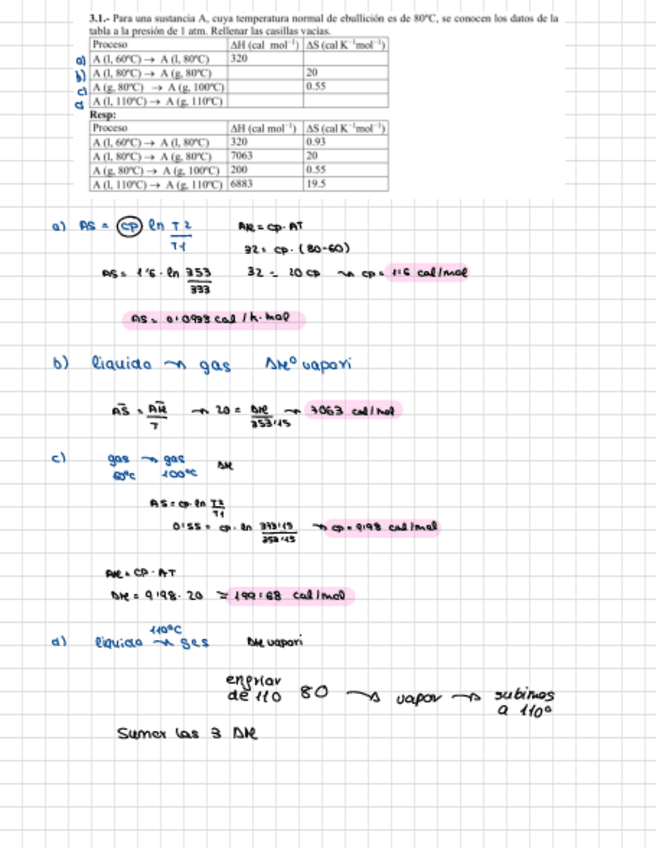 3.1.- Para una sustancia A, cuya temperatura normal de ebullición es de 80ºC, se conocen los datos de la
tabla a la presión de 1 atm. Rellenar las casillas vacías.
Proceso ΔH (cal mol⁻¹) ΔS (cal K⁻¹mol⁻¹)
a) A (l, 60ºC) → A (l, 80ºC) 320
b) A (l, 80ºC) → A (g, 80ºC) 20
c) A (g, 80ºC) → A (g, 100ºC) 0.55
d A (l, 110ºC) → A (g, 110ºC)
Resp:
Proceso ΔH (cal mol⁻¹) ΔS (cal K⁻¹mol⁻¹)
A (l, 60ºC) → A (l, 80ºC) 320 0.93
A (l, 80ºC) → A (g, 80ºC) 7063 20
A (g, 80ºC) → A (g, 100ºC) 200 0.55
A (l, 110ºC) → A (g, 110ºC) 6883 19.5
a) ΔS = cp ln T2/T1 ΔH = cp · ΔT
32 = cp · (80-60)
ΔS = 1'6 · ln 353/333 32 = 20 cp → cp = 1'6 cal/mol
ΔS = 0'0933 cal / k · mol
b) liquido → gas ΔHº vapori
ΔS = ΔH/T → 20 = ΔH/353'15 → 7063 cal/mol
c) gas → gas ΔH
80ºC 100ºC
ΔS = cp · ln T2/T1
0'55 = cp · ln 373'15/353'15 → cp = 9'98 cal/mol
ΔH = cp · ΔT
ΔH = 9'98 · 20 = 199'68 cal/mol
110ºC
d) liquido → gas ΔH vapori
enfriar
de 110 80 → vapor → subimos
a 110º
Sumar las 3 ΔH